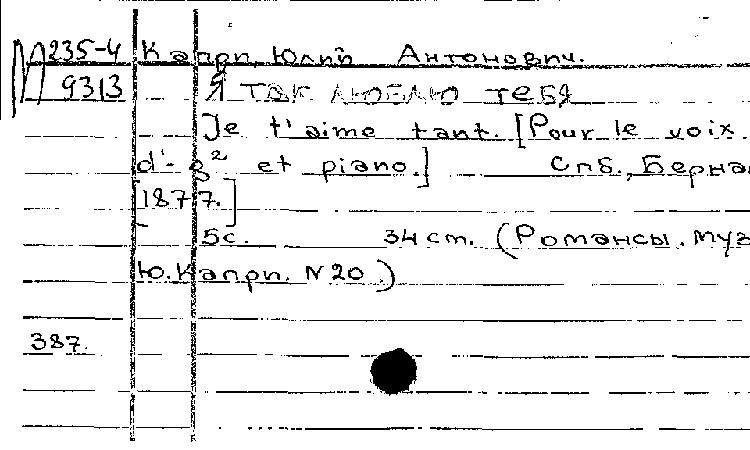 М 235-4 Капри, Юлий Антонович.
9313 Я так люблю тебя
Je t'aime tant. [Pour le voix
d'-g² et piano.] Спб., Берна
[1877.]
5с. 34 см. (Романсы. муз
Ю. Капри. N 20)
387.